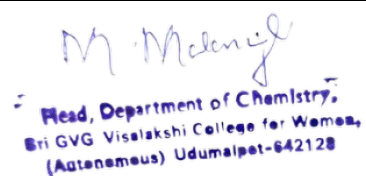 Head, Department of Chemistry,
Sri GVG Visalakshi College for Women,
(Autonomous) Udumalpet-642128